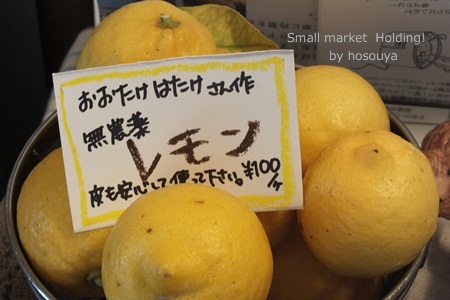 Small market  Holding!
by hosouya
おおたけはたけさん作
無農薬
レモン
皮も安心して使って下さい。¥100/コ